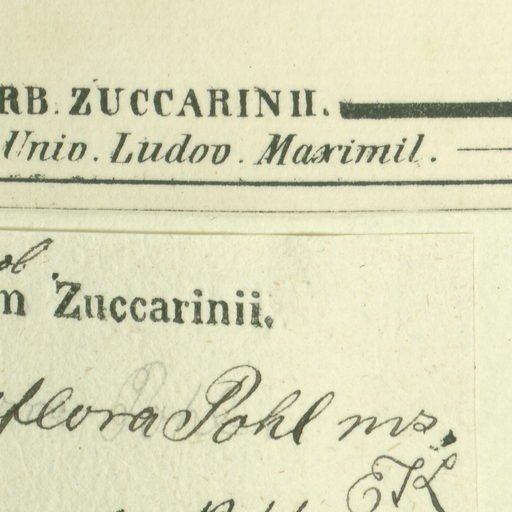 RB. ZUCCARINII.
Univ. Ludov. Maximil.
ob.
m Zuccarinii.
flora Pohl ms.